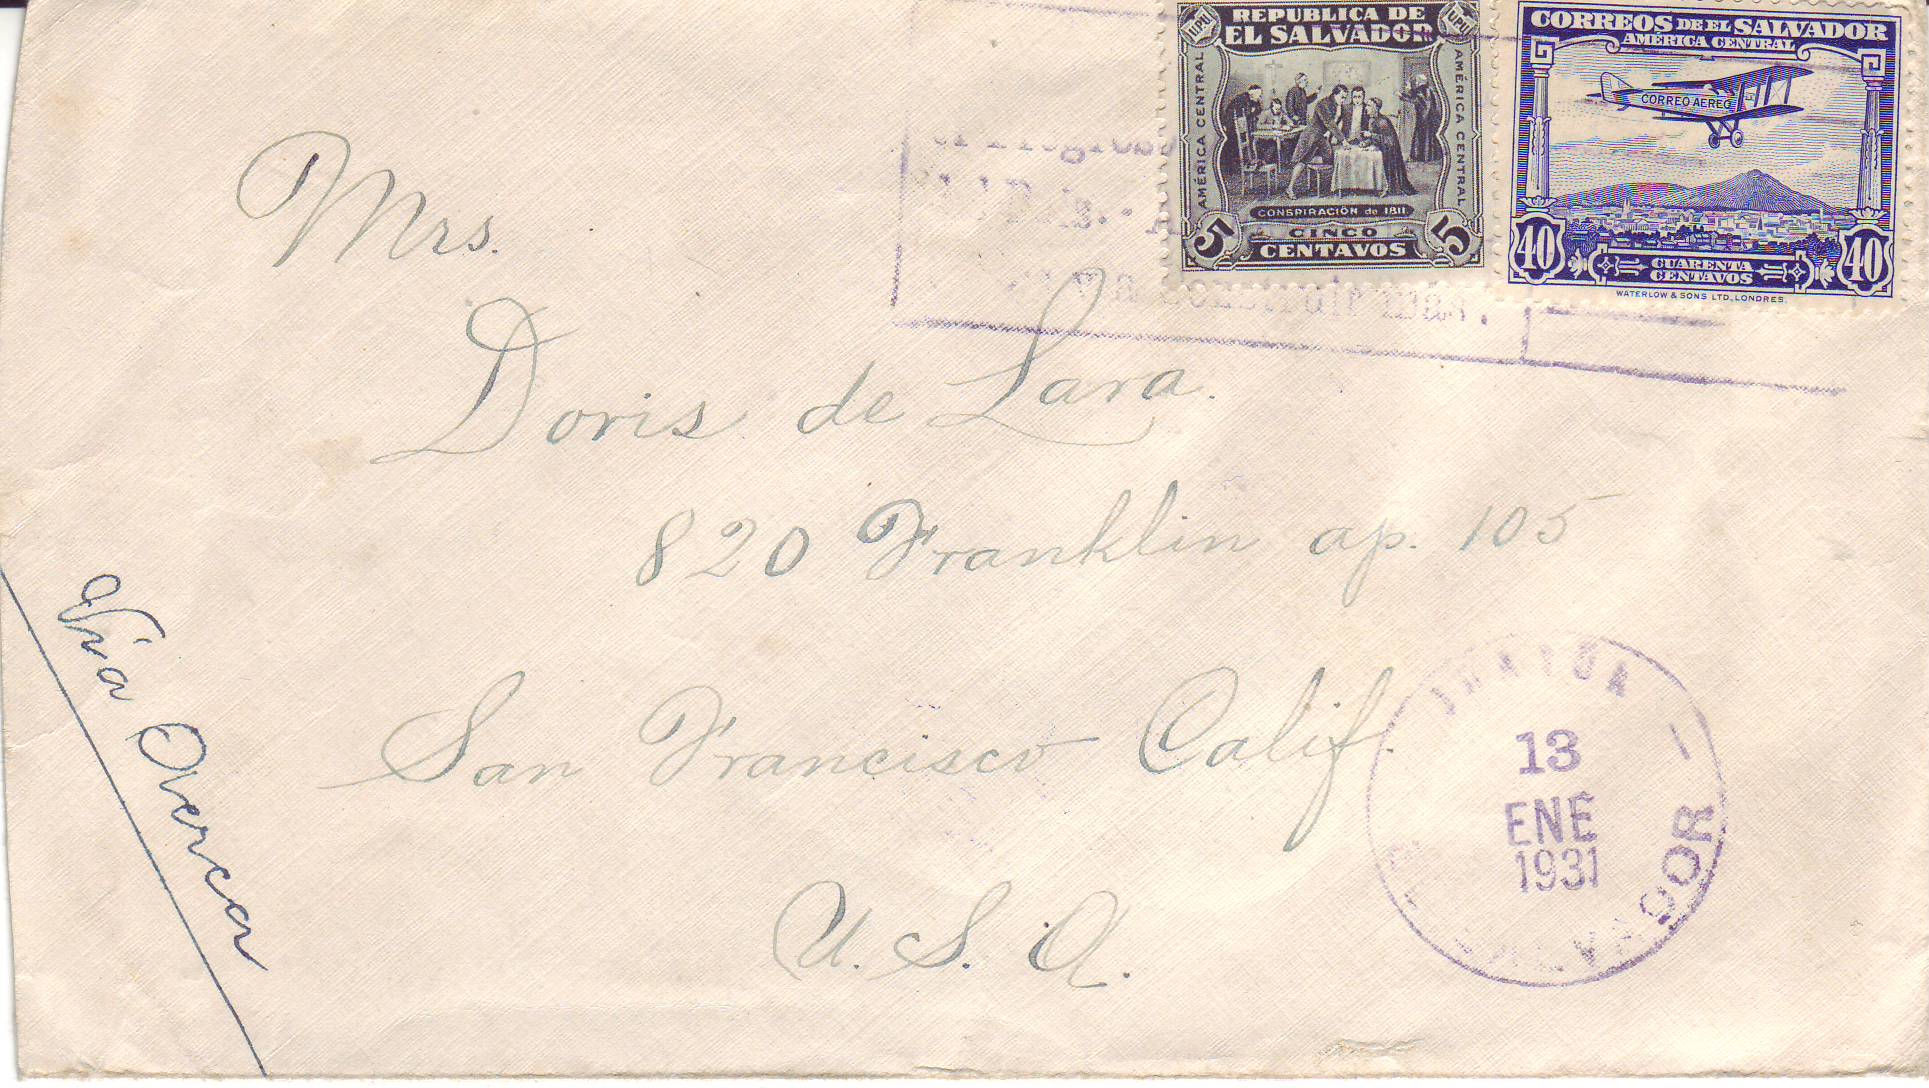 UPU REPUBLICA DE UPU
EL SALVADOR
AMÉRICA CENTRAL
AMÉRICA CENTRAL
CONSPIRACIÓN de 1811
5 CINCO 5
CENTAVOS
CORREOS DE EL SALVADOR
AMÉRICA CENTRAL
CORREO AEREO
40 CUARENTA 40
CENTAVOS
WATERLOW & SONS LTD, LONDRES.
Mrs.
Doris de Lara.
820 Franklin ap. 105
San Francisco Calif.
U. S. A.
Via
13
ENE
1931
EL SALVADOR